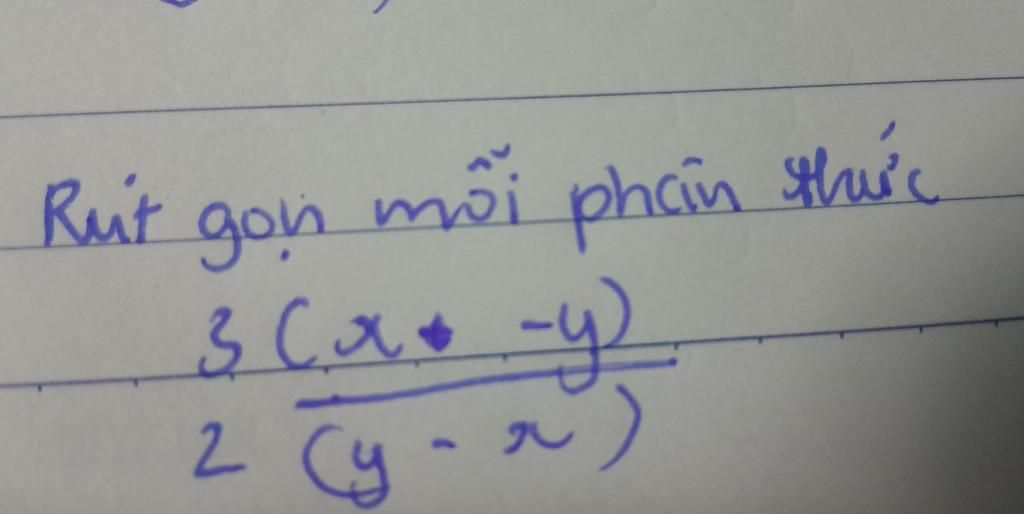 Rút gọn mỗi phân thức
3 (x - y)
2 (y - x)